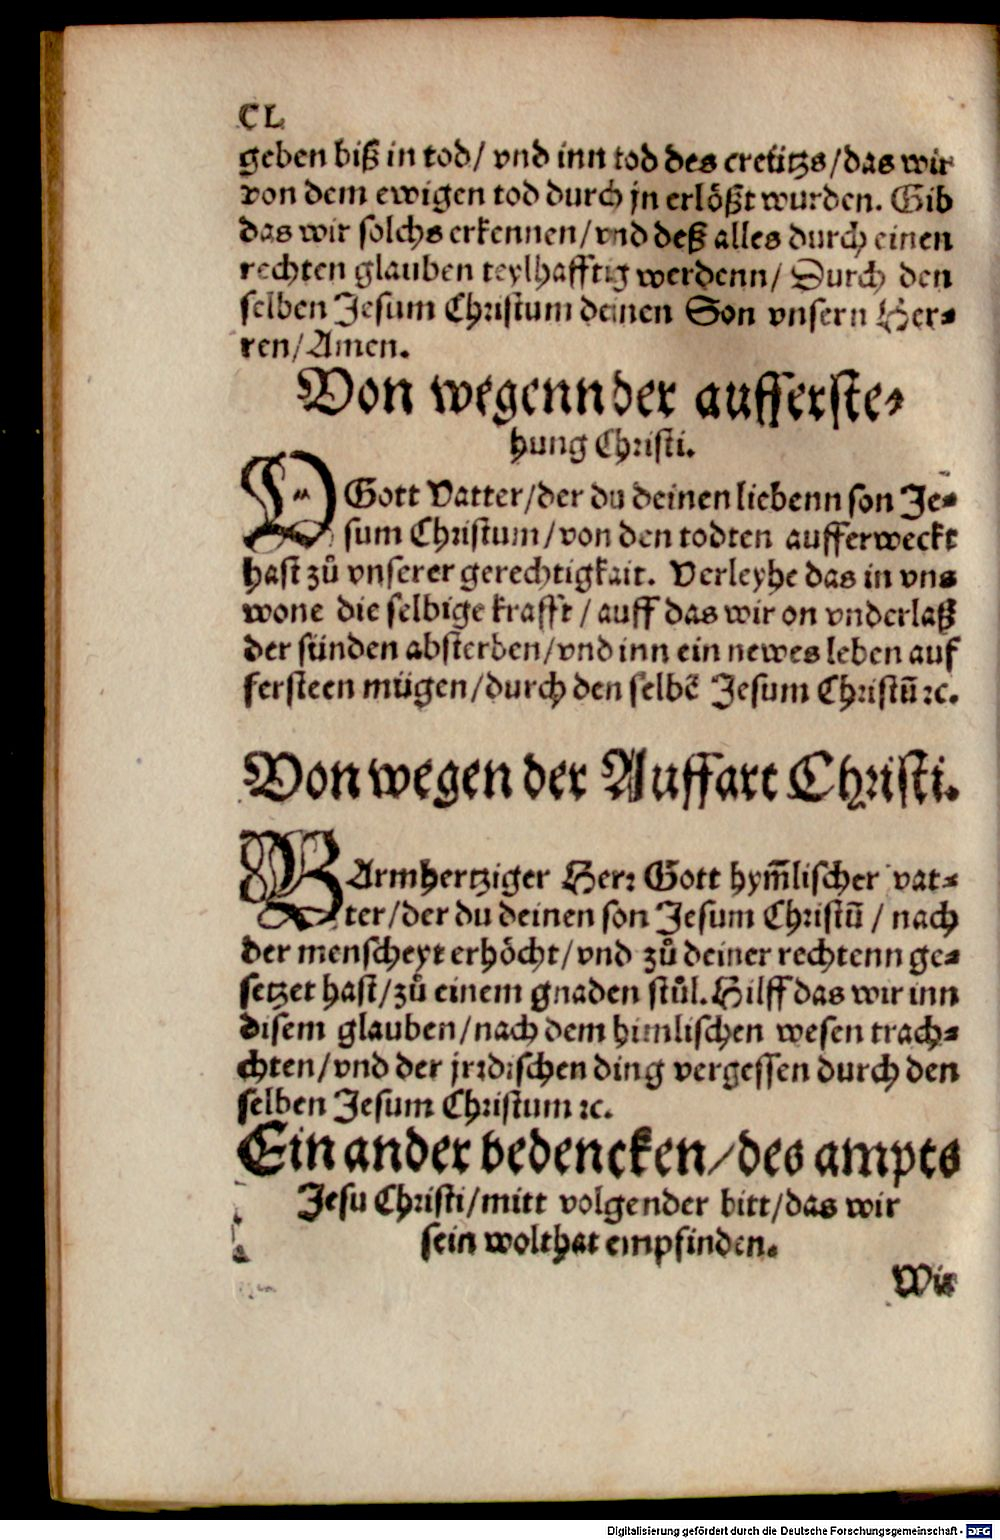 CL
geben biß in tod/ vnd inn tod des creützs/das wir
von dem ewigen tod durch jn erlößt wurden. Gib
das wir solchs erkennen/vnd deß alles durch einen
rechten glauben teylhafftig werdenn/ Durch den
selben Jesum Christum deinen Son vnsern Her⸗
ren/Amen.
Von wegenn der aufferste⸗
hung Christi.
O Gott Vatter/der du deinen liebenn son Je⸗
sum Christum/von den todten aufferweckt
hast zů vnserer gerechtigkait. Verleyhe das in vns
wone die selbige krafft/auff das wir on vnderlaß
der sünden absterben/vnd inn ein newes leben auf
fersteen mügen/durch den selbē Jesum Christū ꝛc.
Von wegen der Auffart Christi.
BArmhertziger Herꝛ Gott hym̄lischer vat⸗
ter/der du deinen son Jesum Christū/nach
der menscheyt erhöcht/vnd zů deiner rechtenn ge⸗
setzet hast/zů einem gnaden stůl. Hilff das wir inn
disem glauben/nach dem himlischen wesen trach⸗
chten/vnd der jrꝛdischen ding vergessen durch den
selben Jesum Christum ꝛc.
Ein ander bedencken/des ampts
Jesu Christi/mitt volgender bitt/das wir
sein wolthat empfinden.
Wir
Digitalisierung gefördert durch die Deutsche Forschungsgemeinschaft - DFG